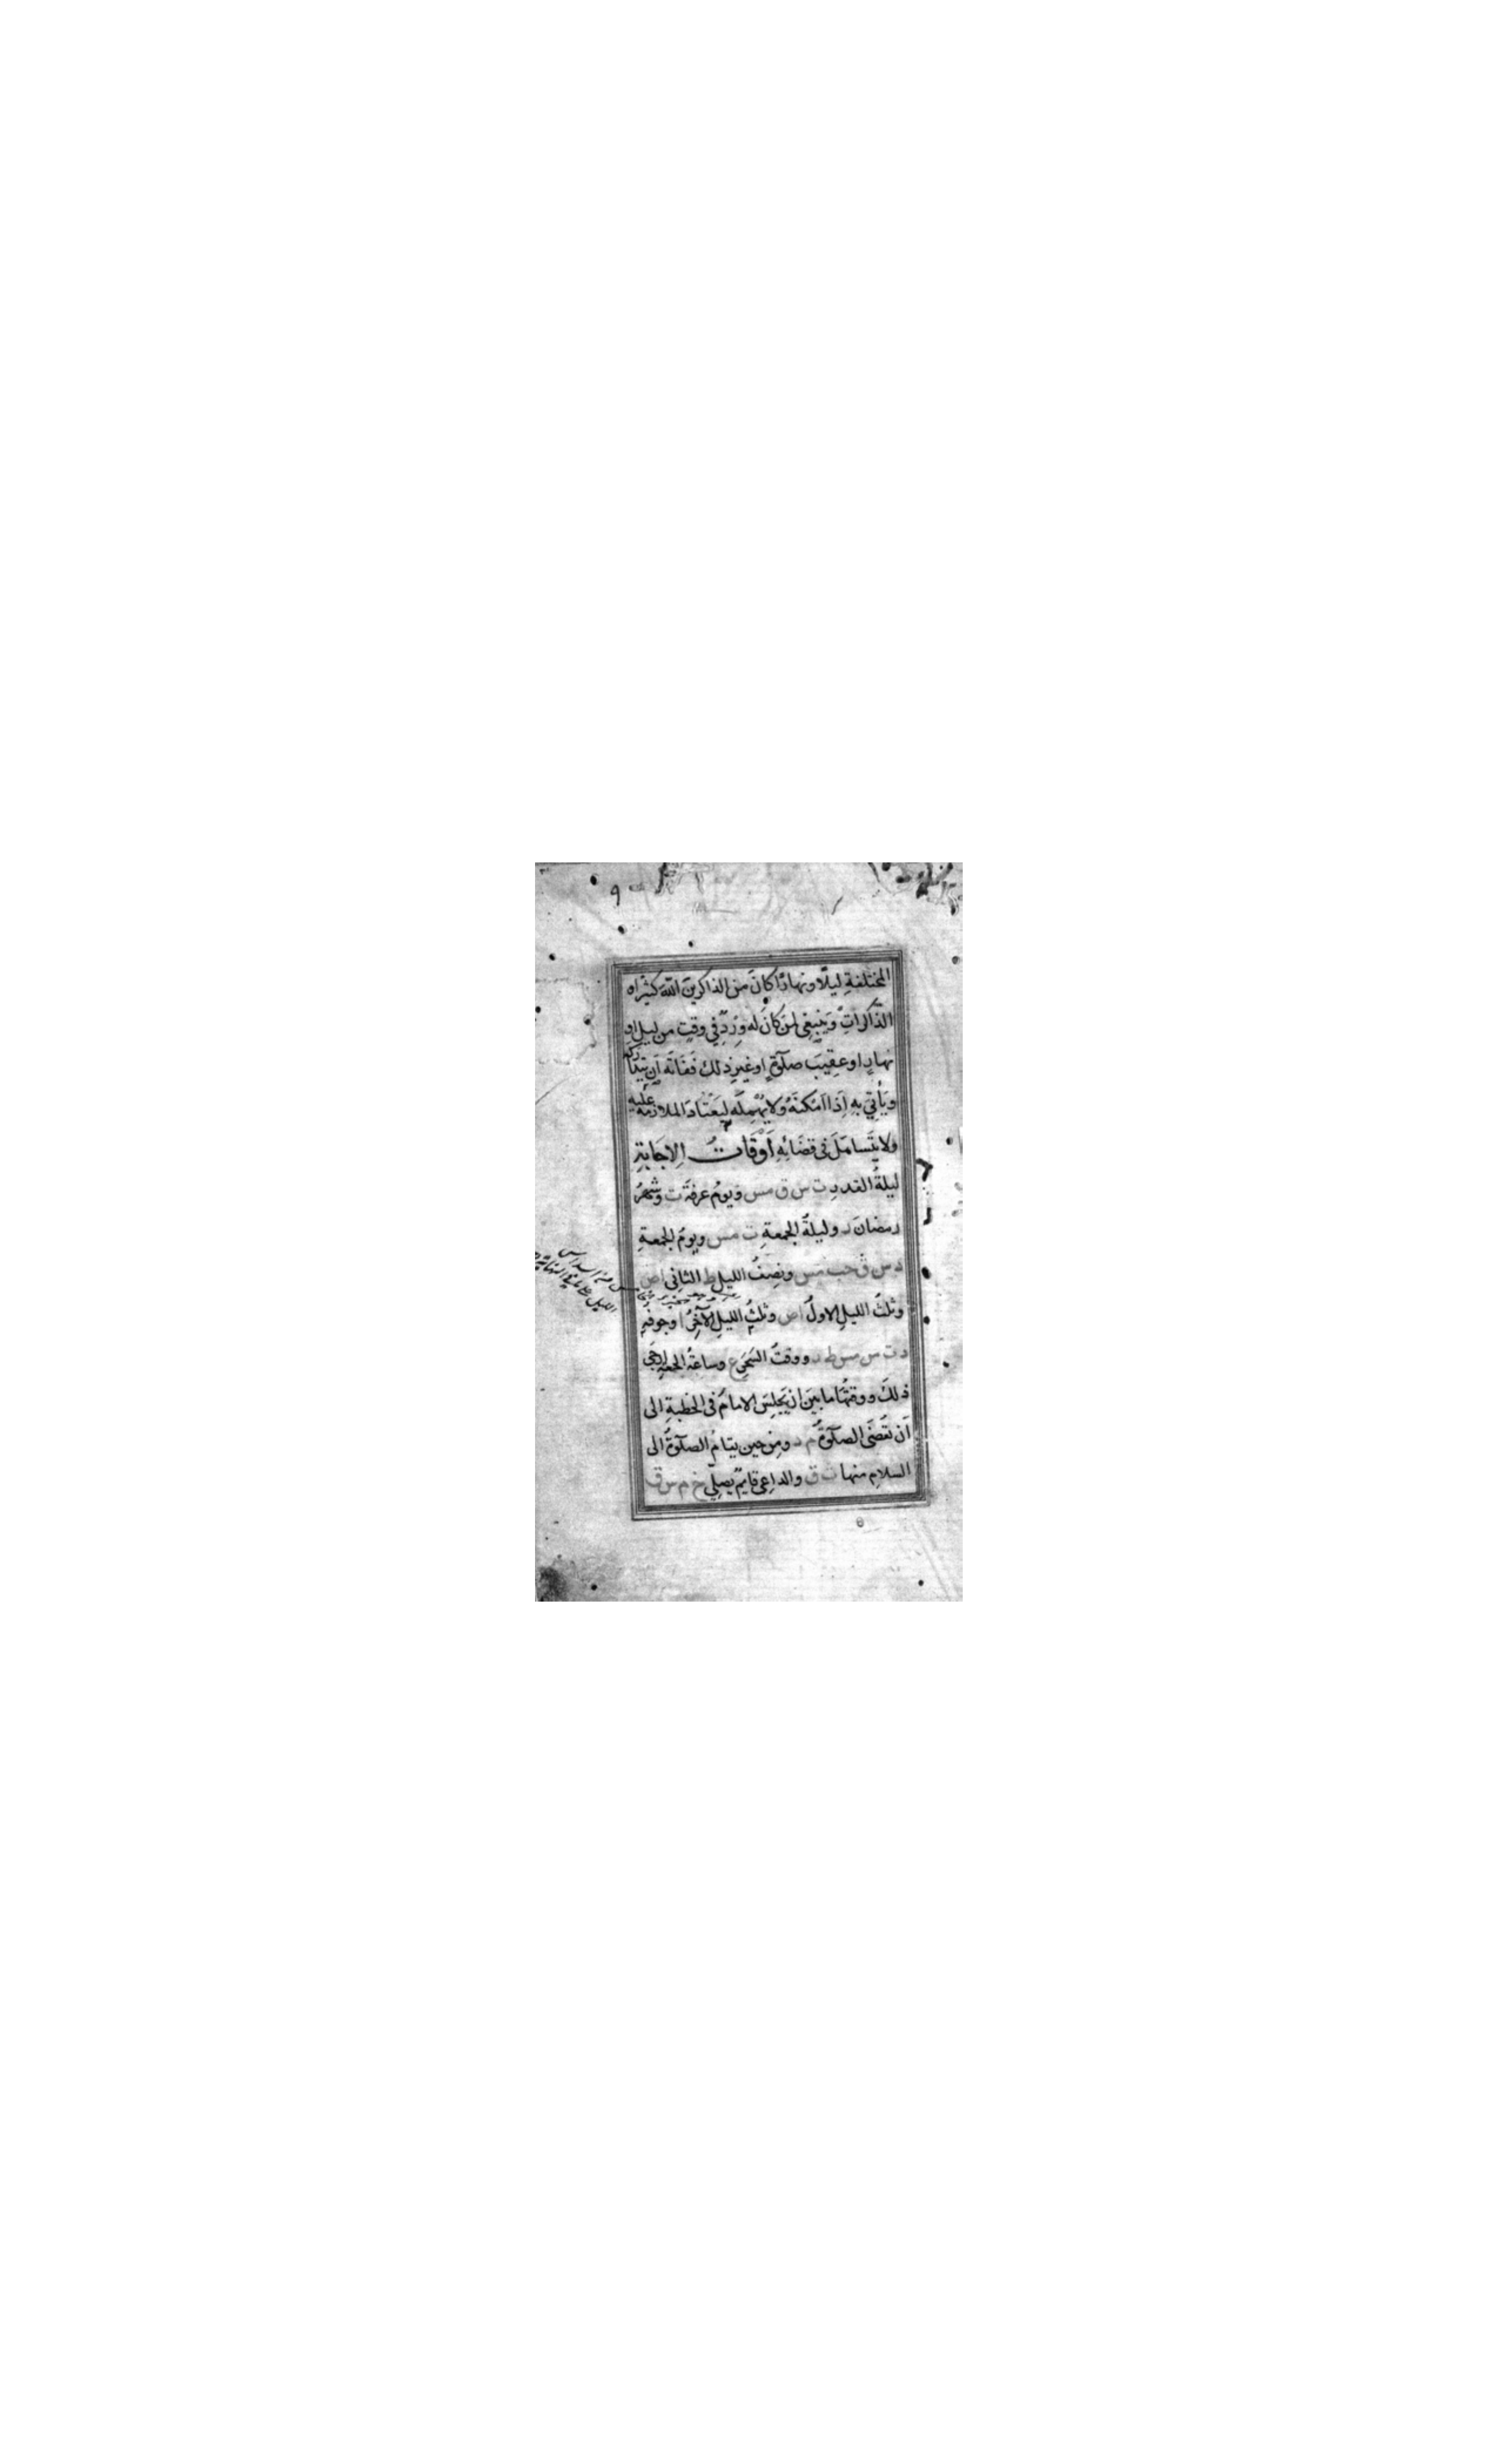 المختلفةِ ليلًا ونهارًا كانَ من الذاكرينَ اللّٰهَ كثيرًا و
الذّاكراتِ وَيَنبغِي لمَن كانَ له وِرْدٌ في وقتٍ من ليلٍ او
نهارٍ او عقيبَ صلٰوةٍ او غيرِ ذلك فَفَاتَه اَن يتداركه
ويأتِيَ بهِ اِذا امكنَهُ ولا يُهْمِلَه لِيَعْتادَ الملازمة عليه
ولا يتَساهَلَ في قضَائِهِ اَوْقَاتُ الاِجَابَةِ
ليلةُ القدرِ ت س ق مس ويومُ عرفةَ ت وشهرُ
رمضانَ ر وليلةُ الجمعةِ ت مس ويومُ الجمعةِ
د س ق حب مس ونِصفُ الليلِ ط الثاني اص
وثلثُ الليلِ الاولُ اص وثلثُ الليلِ الآخرُ ا وجوفه
د ت س مس ط ر ووقتُ السَّحَرِ ع وساعةُ الجمعةِ ارجى
ذلكَ ووقتُها ما بينَ ان يَجلِسَ الامامُ في الخطبةِ الى
اَن تُقضَى الصلٰوةُ م د ومِن حين يتام الصلٰوةُ الى
السلامِ منها ت ق والداعِي قايمٌ يصلِّي خ م س ق